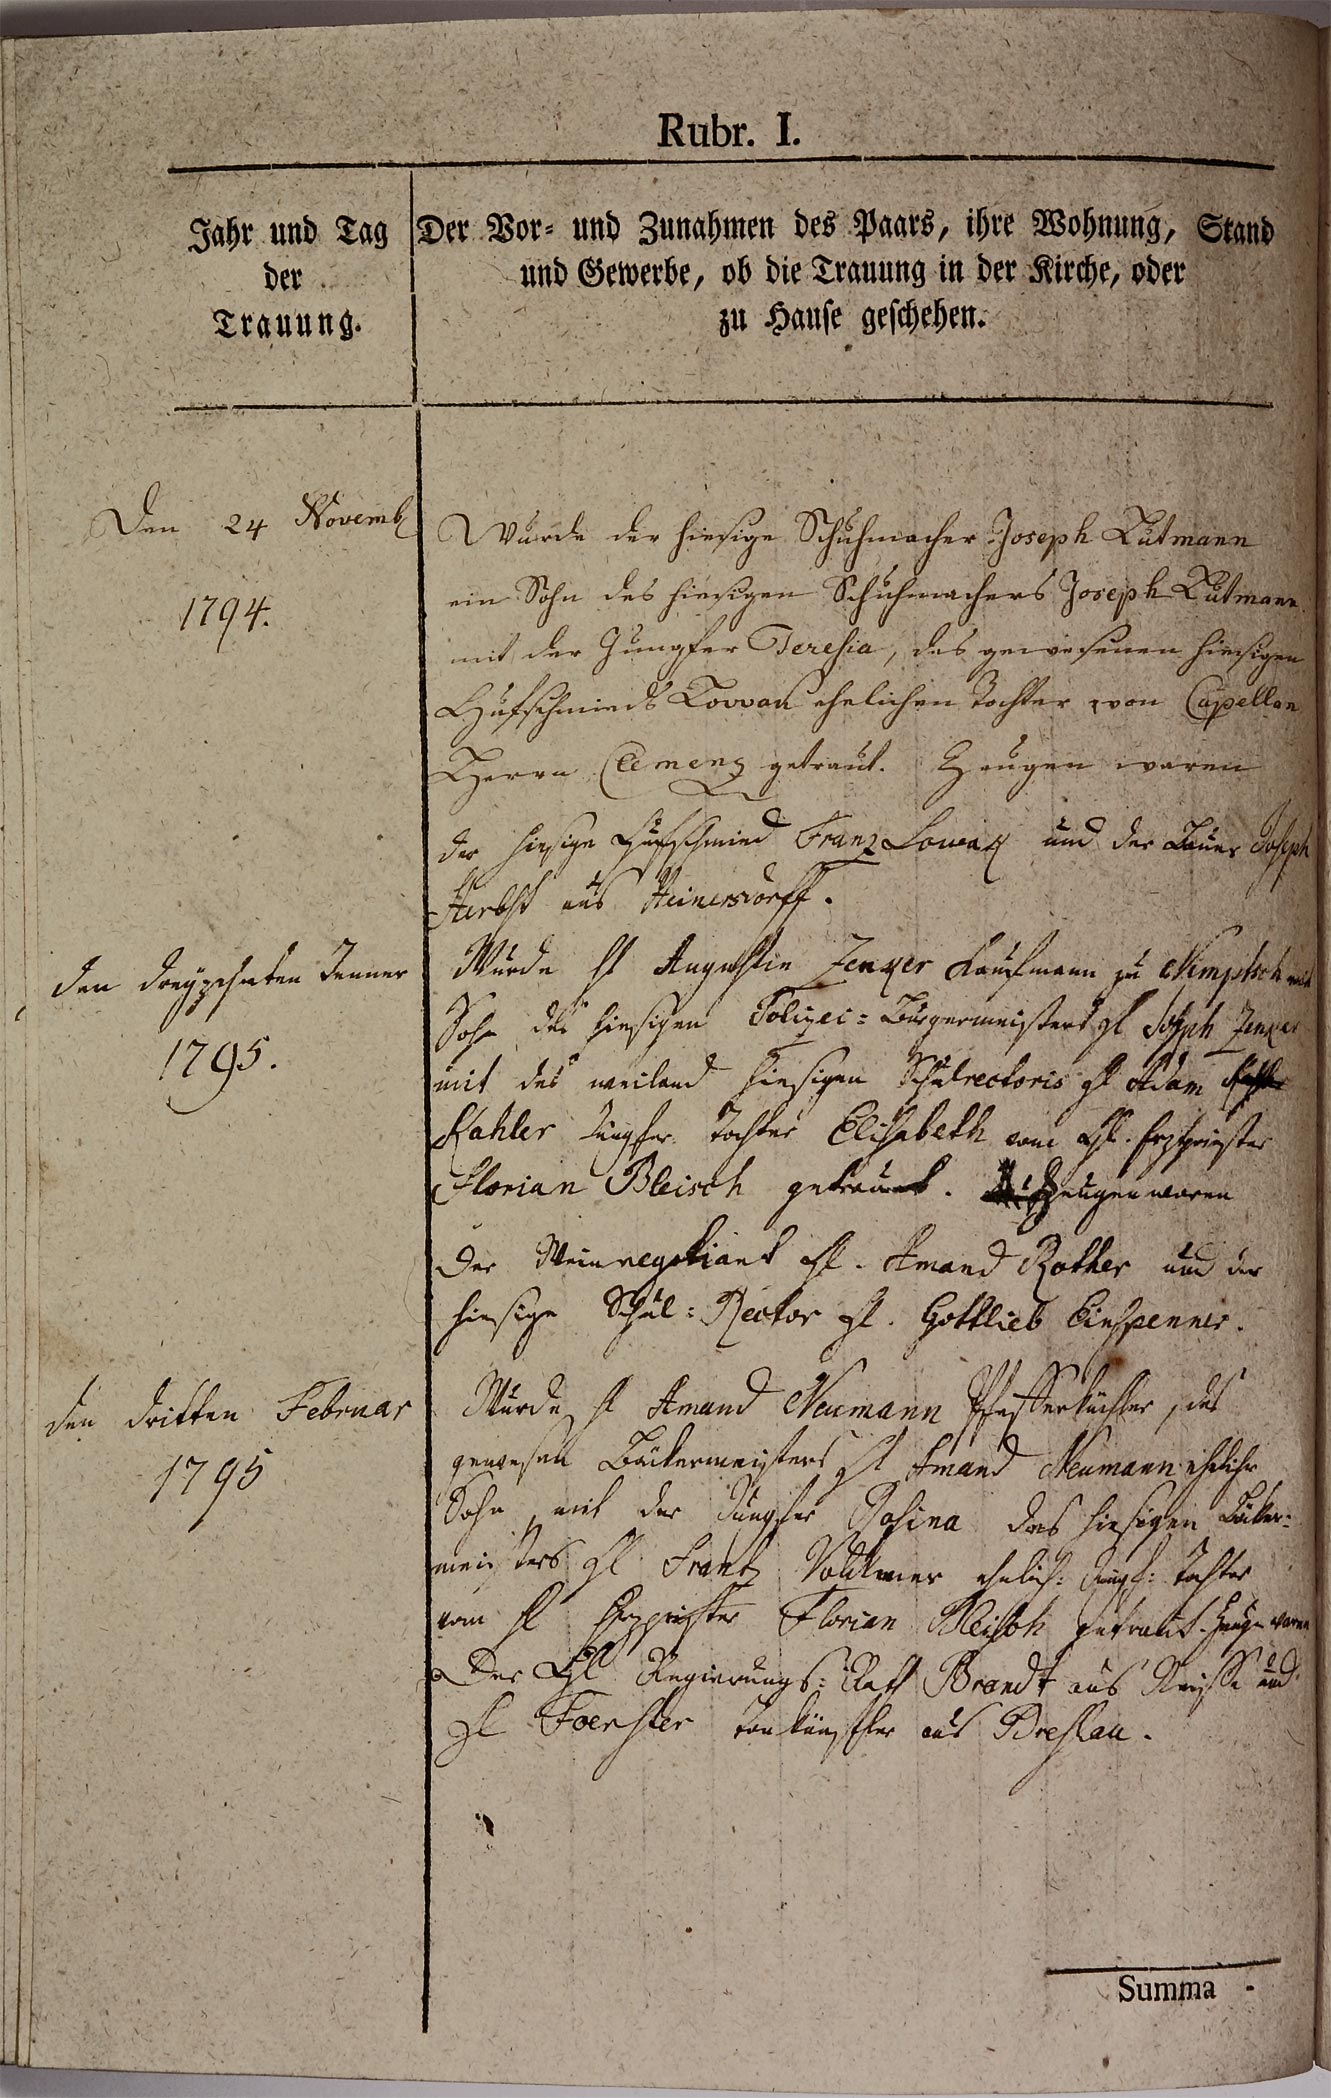 Rubr. I.
Jahr und Tag
der
Trauung.
Der Vor- und Zunahmen des Paars, ihre Wohnung, Stand
und Gewerbe, ob die Trauung in der Kirche, oder
zu Hause geschehen.
Den 24 Novemb
1794.
Wurde der hiesige Schuhmacher Joseph Lutmann
ein Sohn des hiesigen Schuhmachers Joseph Lutmann
mit der Jungfer Teresia, des gewesenen hiesigen
Hufschmieds ehelichen Tochter von Capellan
Herrn Clemenz getraut. Zeugen waren
der hiesige Hufschmied Franz und der Bauer Joseph
Herbst aus Heinersdorff.
den dreyzehnten Jenner
1795.
Wurde H Augustin Kaufmann zu Nimptsch
Sohn des hiesigen Polizei-Bürgermeisters H Joseph
mit des weiland hiesigen Schulrectoris H Adam
Kahler Jungfer Tochter Elisabeth vom H. Erzpriester
Florian Bleisch getraut. Zeugen waren
Der Weinnegotiant H. Amand Rother und der
hiesige Schul-Rector H. Gottlieb Einspenner.
den dritten Februar
1795
Wurde H Amand Neumann Pfefferküchler, des
gewesen Bäckermeisters H Amand Neumann ehelicher
Sohn, mit der Jungfer Rosina des hiesigen Bäcker-
meisters H Frantz Volckmer ehelich: Jungf: Tochter
vom H Erzpriester Florian Bleisch getraut. Zeugen waren
Der H Regierungs-Rath Brandt aus Neisse und
H Foerster Tonkünstler aus Breslau.
Summa -